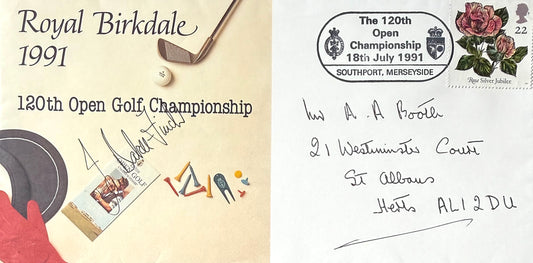 Royal Birkdale
1991
120th Open Golf Championship
GOLF
The 120th
Open
Championship
18th July 1991
SOUTHPORT, MERSEYSIDE
22
Rose Silver Jubilee
Mr A. A Booth
21 Westminster Court
St Albans
Herts AL1 2DU